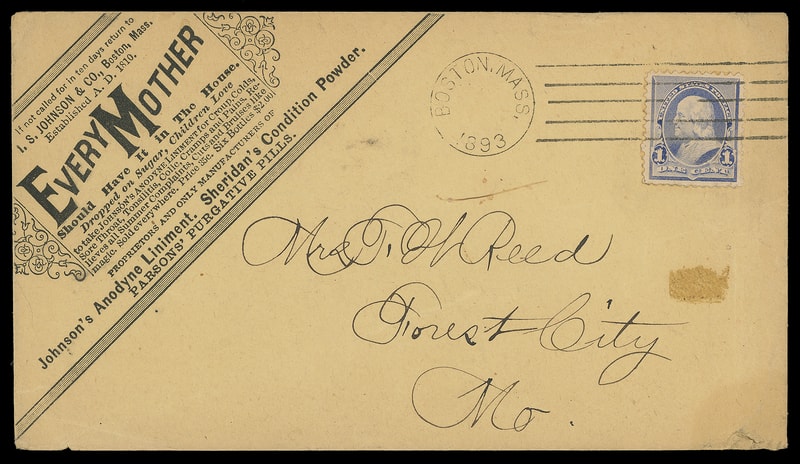 If not called for in ten days return to
I. S. JOHNSON & CO., Boston, Mass.
Established A. D. 1810.
EVERY MOTHER
Should Have It in The House.
Dropped on Sugar, Children Love
to take JOHNSON'S ANODYNE LINIMENT for Croup, Colds,
Sore Throat, Tonsilitis, Colic, Cramps and Pains. Re-
lieves all Summer Complaints, Cuts and Bruises like
magic. Sold everywhere. Price 35c. Six Bottles $2.00.
PROPRIETORS AND ONLY MANUFACTURERS OF
Johnson's Anodyne Liniment. Sheridan's Condition Powder.
PARSONS' PURGATIVE PILLS.
BOSTON, MASS.
1893
1 1
Mrs T. W Reed
Forest City
Mo.